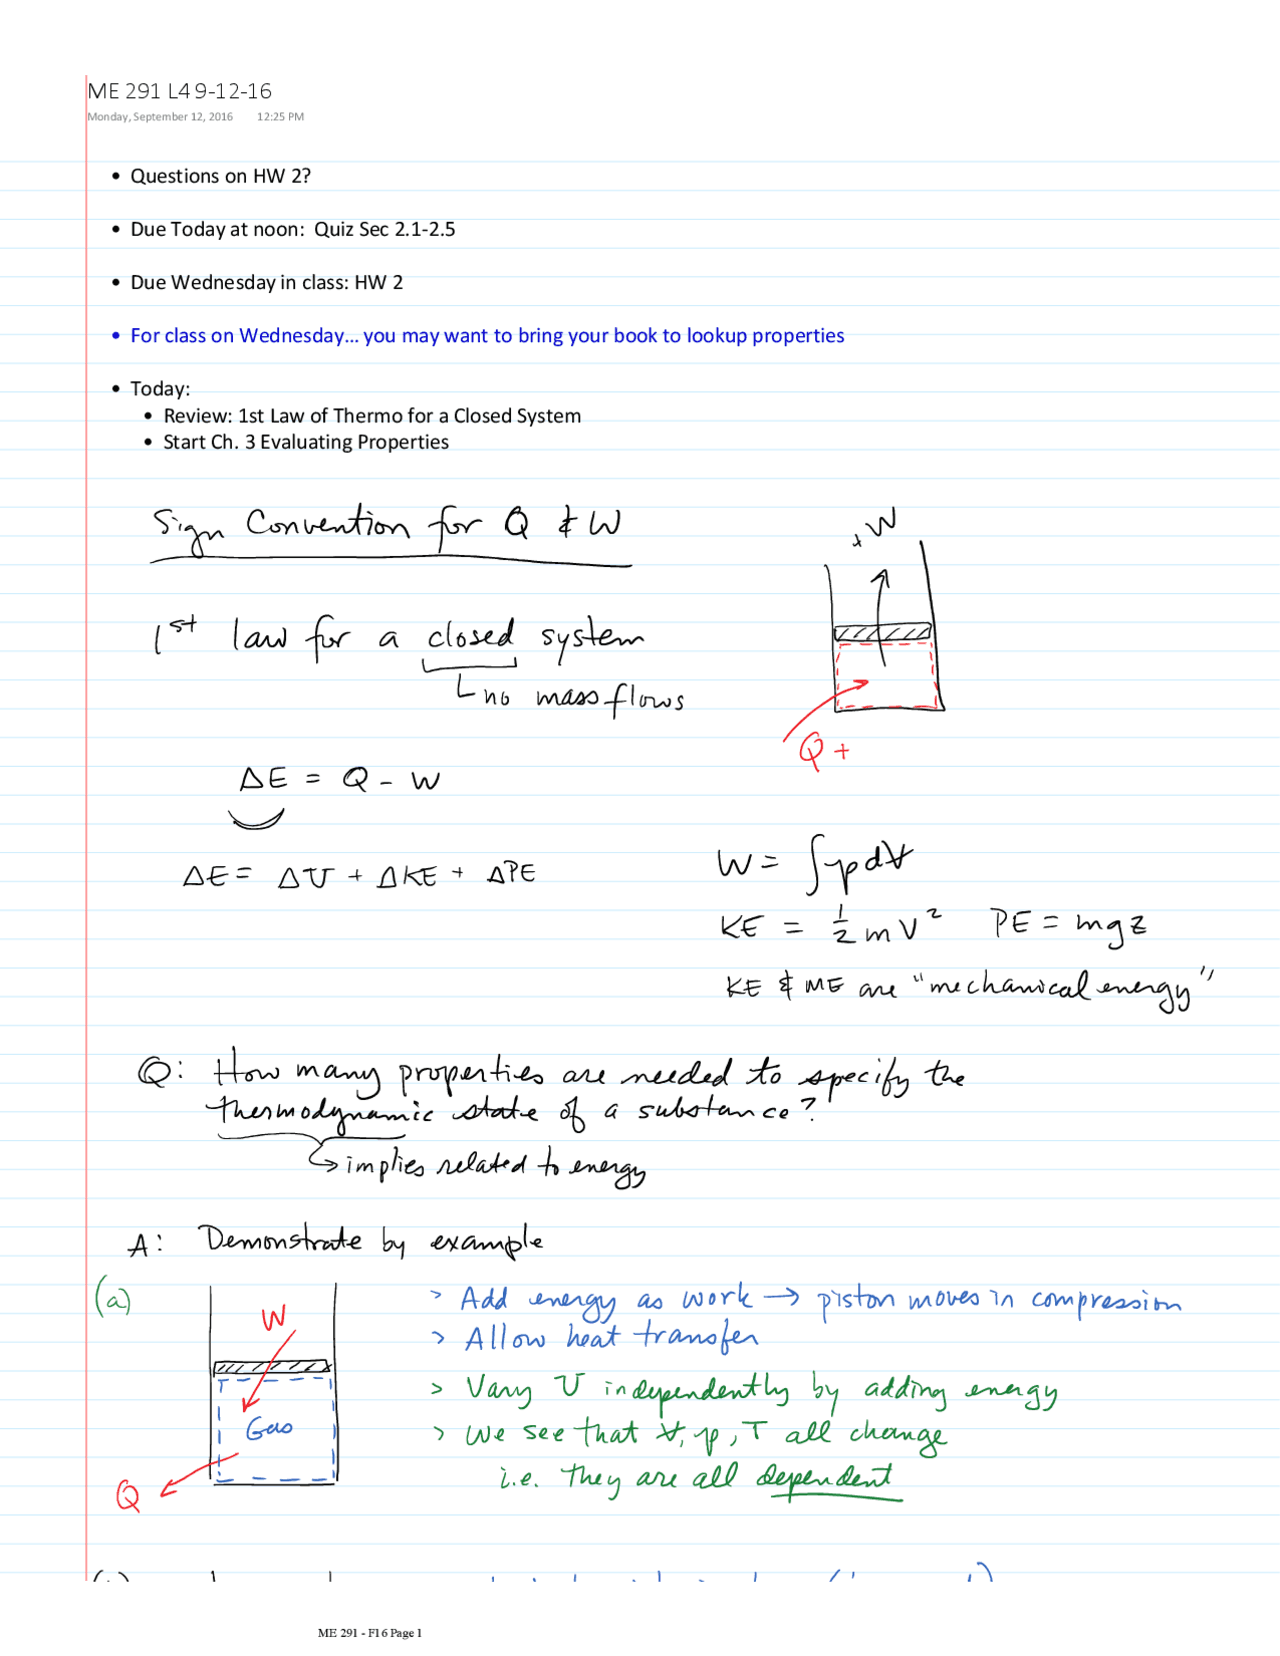 ME 291 L4 9-12-16
Monday, September 12, 2016 12:25 PM
• Questions on HW 2?
• Due Today at noon: Quiz Sec 2.1-2.5
• Due Wednesday in class: HW 2
• For class on Wednesday... you may want to bring your book to lookup properties
• Today:
• Review: 1st Law of Thermo for a Closed System
• Start Ch. 3 Evaluating Properties
Sign Convention for Q & W
+W
1st law for a closed system
no mass flows
Q +
ΔE = Q - W
ΔE = ΔU + ΔKE + ΔPE
W = ∫pdV
KE = 1/2 mV² PE = mgz
KE & ME are "mechanical energy"
Q: How many properties are needed to specify the
thermodynamic state of a substance?
↳ implies related to energy
A: Demonstrate by example
(a)
W
Gas
Q
> Add energy as work → piston moves in compression
> Allow heat transfer
> Vary U independently by adding energy
> We see that V, p, T all change
i.e. they are all dependent
ME 291 - F16 Page 1